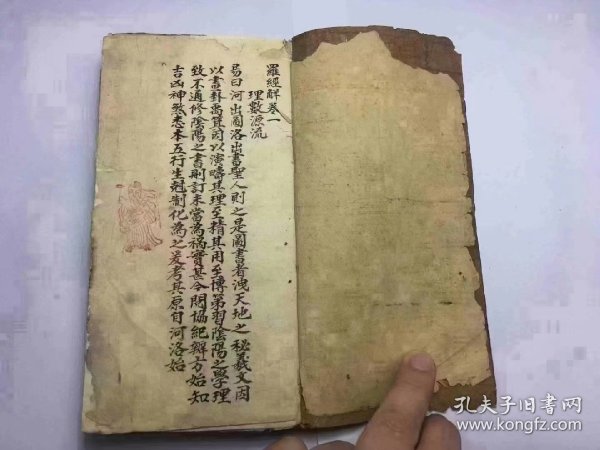 羅經解卷一
理數源流
易曰河出圖洛出書聖人則之是圖書者洩天地之秘羲文因
以畫卦禹箕因以演疇其理至精其用至博第習陰陽之學理
致不通修陰陽之書刪訂未當為禍實甚今閱協紀辨方始知
吉凶神煞悉本五行生剋制化為之爰考其原自河洛始
孔夫子旧书网
www.kongfz.com